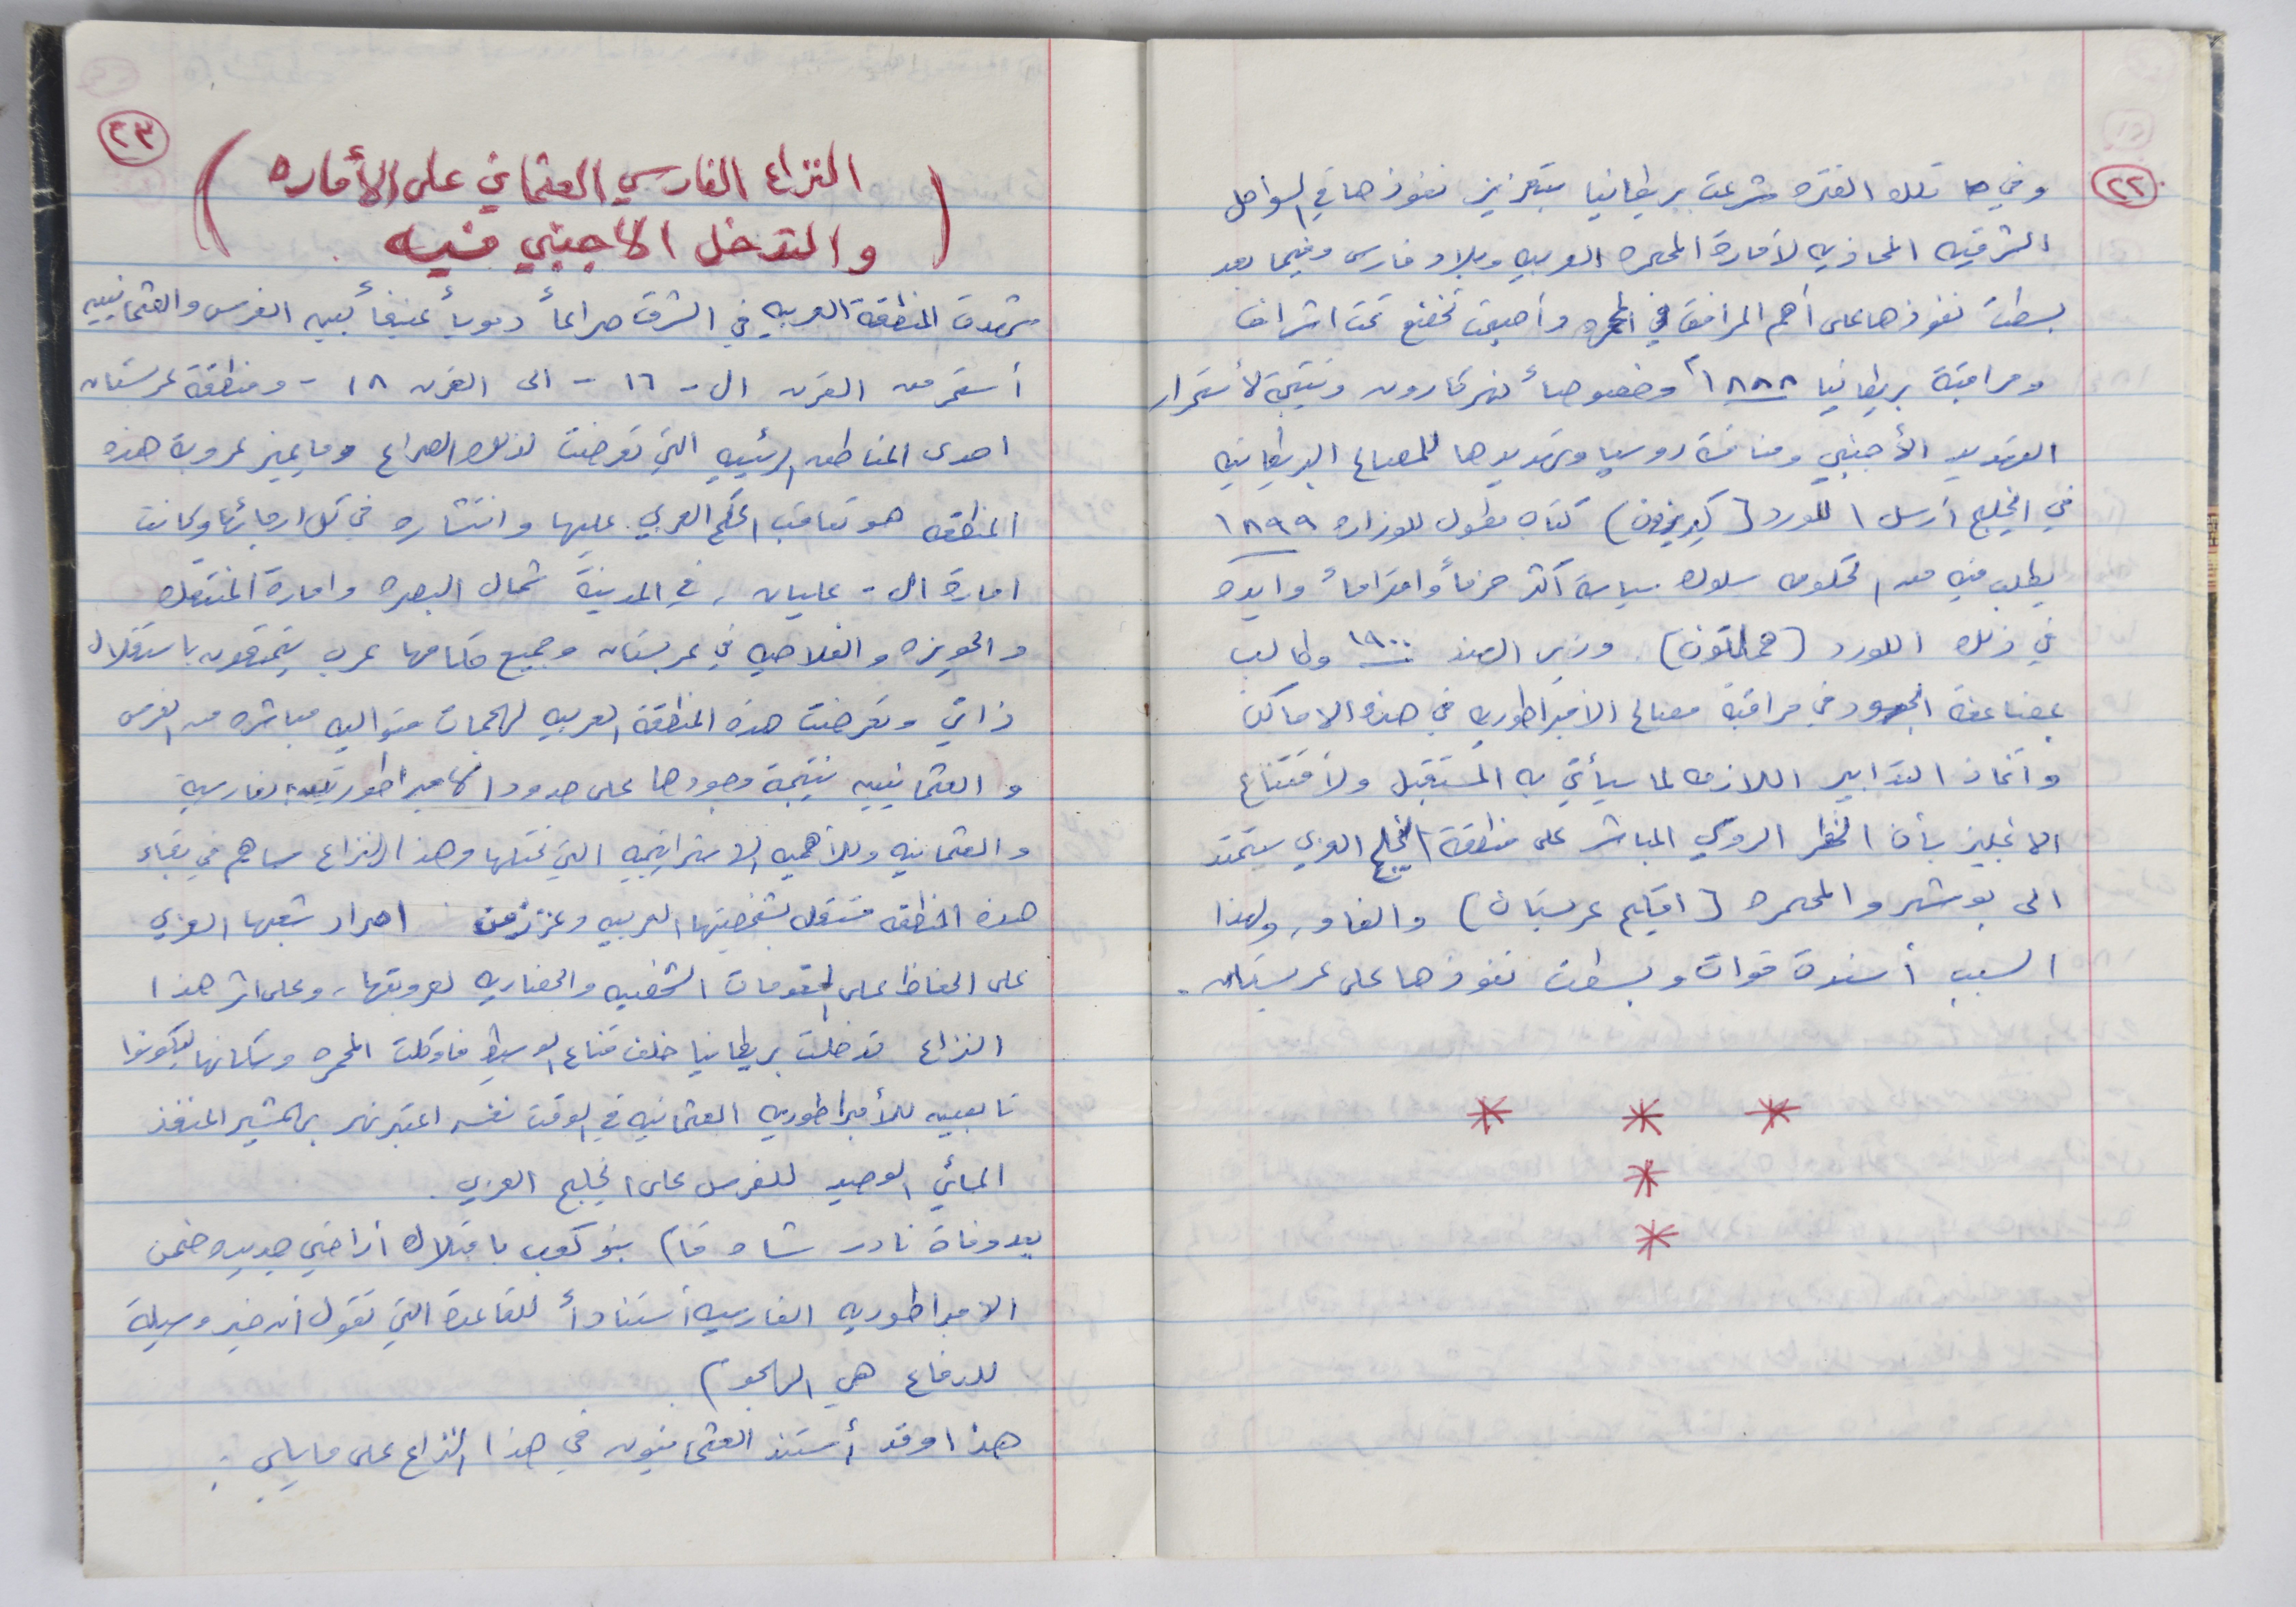 ٢٢
وفي تلك الفتره شرعت بريطانيا بتعزيز نفوذها في السواحل
الشرقيه المحاذيه لأمارة المحمره العربيه وبلاد فارس وفيما بعد
بسطت نفوذها على أهم المرافق في المحمره وأصبحت تخضع تحت اشراف
ومراقبة بريطانيا ١٨٨٨م وخصوصاً نهر كارون ونتيجة لأستمرار
التهديد الأجنبي ومنافسة روسيا وتهديدها للمصالح البريطانيه
في الخليج أرسل اللورد (كيرزون) كتاب مطول للوزاره ١٨٩٩
يطلب فيه من الحكومه سلوك سياسة أكثر حزماً واحتراماً وايده
في ذلك اللورد (هملتون) وزير الهند ١٩٠٠ وطالب
بمضاعفة الجهود في مراقبة مصالح الامبراطوريه في هذه الاماكن
واتخاذ التدابير اللازمه لما سيأتي به المستقبل ولأقتناع
الانجليز بأن الخطر الروسي المباشر على منطقة الخليج العربي ستمتد
الى بوشهر والمحمره (اقليم عربستان) والفاو، ولهذا
السبب أسندة قوات وبسطت نفوذها على عربستان.
* * *
*
*
٢٣
(النزاع الفارسي العثماني على الأماره
والتدخل الاجنبي فيه)
شهدت المنطقة العربيه في الشرق صراعاً دموياً عنيفاً بين الفرس والعثمانيين
أستمر من القرن ال - ١٦ - الى القرن ١٨ - ومنطقة عربستان
احدى المناطق الرئيسيه التي تعرضت لذلك الصراع وما يميز عروبة هذه
المنطقه هو تعاقب الحكم العربي عليها وانتشاره في كل ارجائها وكانت
امارة ال - عليان، في المدينة شمال البصره وامارة المنتفك
والحويزه والفلاحيه في عربستان وجميع حكامها عرب يتمتعون باستقلال
ذاتي وتعرضت هذه المنطقة العربيه لهجمات متواليه مباشره من الفرس
والعثمانيين نتيجة وجودها على حدود الامبراطوريتين الفارسية
والعثمانيه وللأهميه الاستراتيجيه التي تحتلها وهذا النزاع ساهم في بقاء
هذه المنطقه مستقله بشخصيتها العربيه وعزز من اصرار شعبها العربي
على الحفاظ على المقومات الشخصيه والحضاريه لعروبتها، وعلى اثر هذا
النزاع تدخلت بريطانيا خلف قناع الوسيط فاوكلت المحمره وسكانها ليكونوا
تابعين للأمبراطوريه العثمانيه في الوقت نفسه اعتبر نهر بهمشير المنفذ
المائي الوحيد للفرس على الخليج العربي.
بعد وفاة نادر شاه قام بنو كعب باحتلال أراضي جديده ضمن
الامبراطوريه الفارسيه أستناداً للقاعدة التي تقول ان خير وسيلة
للدفاع هي الهجوم)
هذا وقد أستند العثمانيون في هذا النزاع على مايلي: